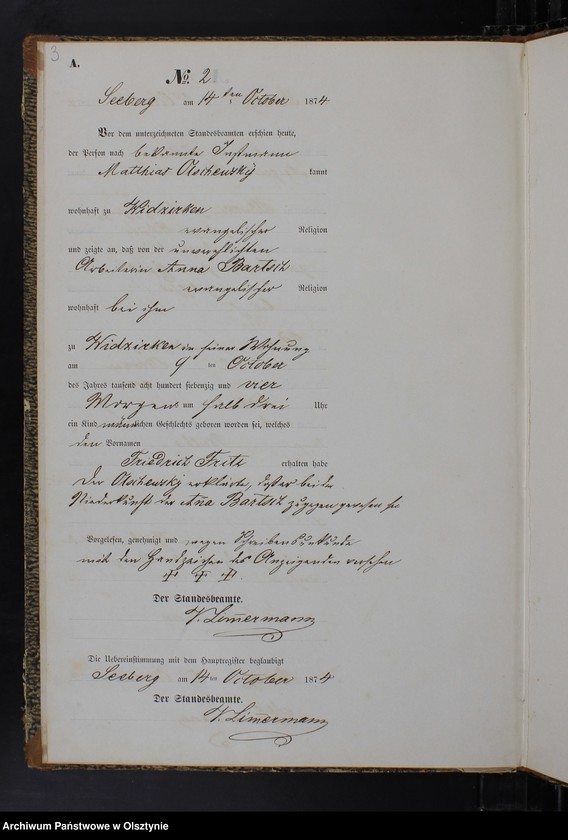 3
A.
No. 2
Seeberg am 14 ten October 1874
Vor dem unterzeichneten Standesbeamten erschien heute,
der Person nach bekannte Instmann
Matthias Olschewsky kannt
wohnhaft zu Widzirken
evangelischer Religion
und zeigte an, daß von der unverehlichten
Arbeiterin Anna Bartsch
evangelischer Religion
wohnhaft bei ihm
zu Widzirken in seiner Wohnung
am 9 ten October
des Jahres tausend acht hundert siebenzig und vier
Morgens um halb drei Uhr
ein Kind männlichen Geschlechts geboren worden sei, welches
den Vornamen
Friedrich Fritz erhalten habe
Der Olschewsky erklärte, daß er bei der
Niederkunft der Anna Bartsch zugegen gewesen sei
Vorgelesen, genehmigt und wegen Schreibensunkunde
mit den Handzeichen des Anzeigenden versehen
+ + +
Der Standesbeamte.
Zimmermann
Die Uebereinstimmung mit dem Hauptregister beglaubigt
Seeberg am 14 ten October 1874
Der Standesbeamte.
Zimmermann
Archiwum Państwowe w Olsztynie